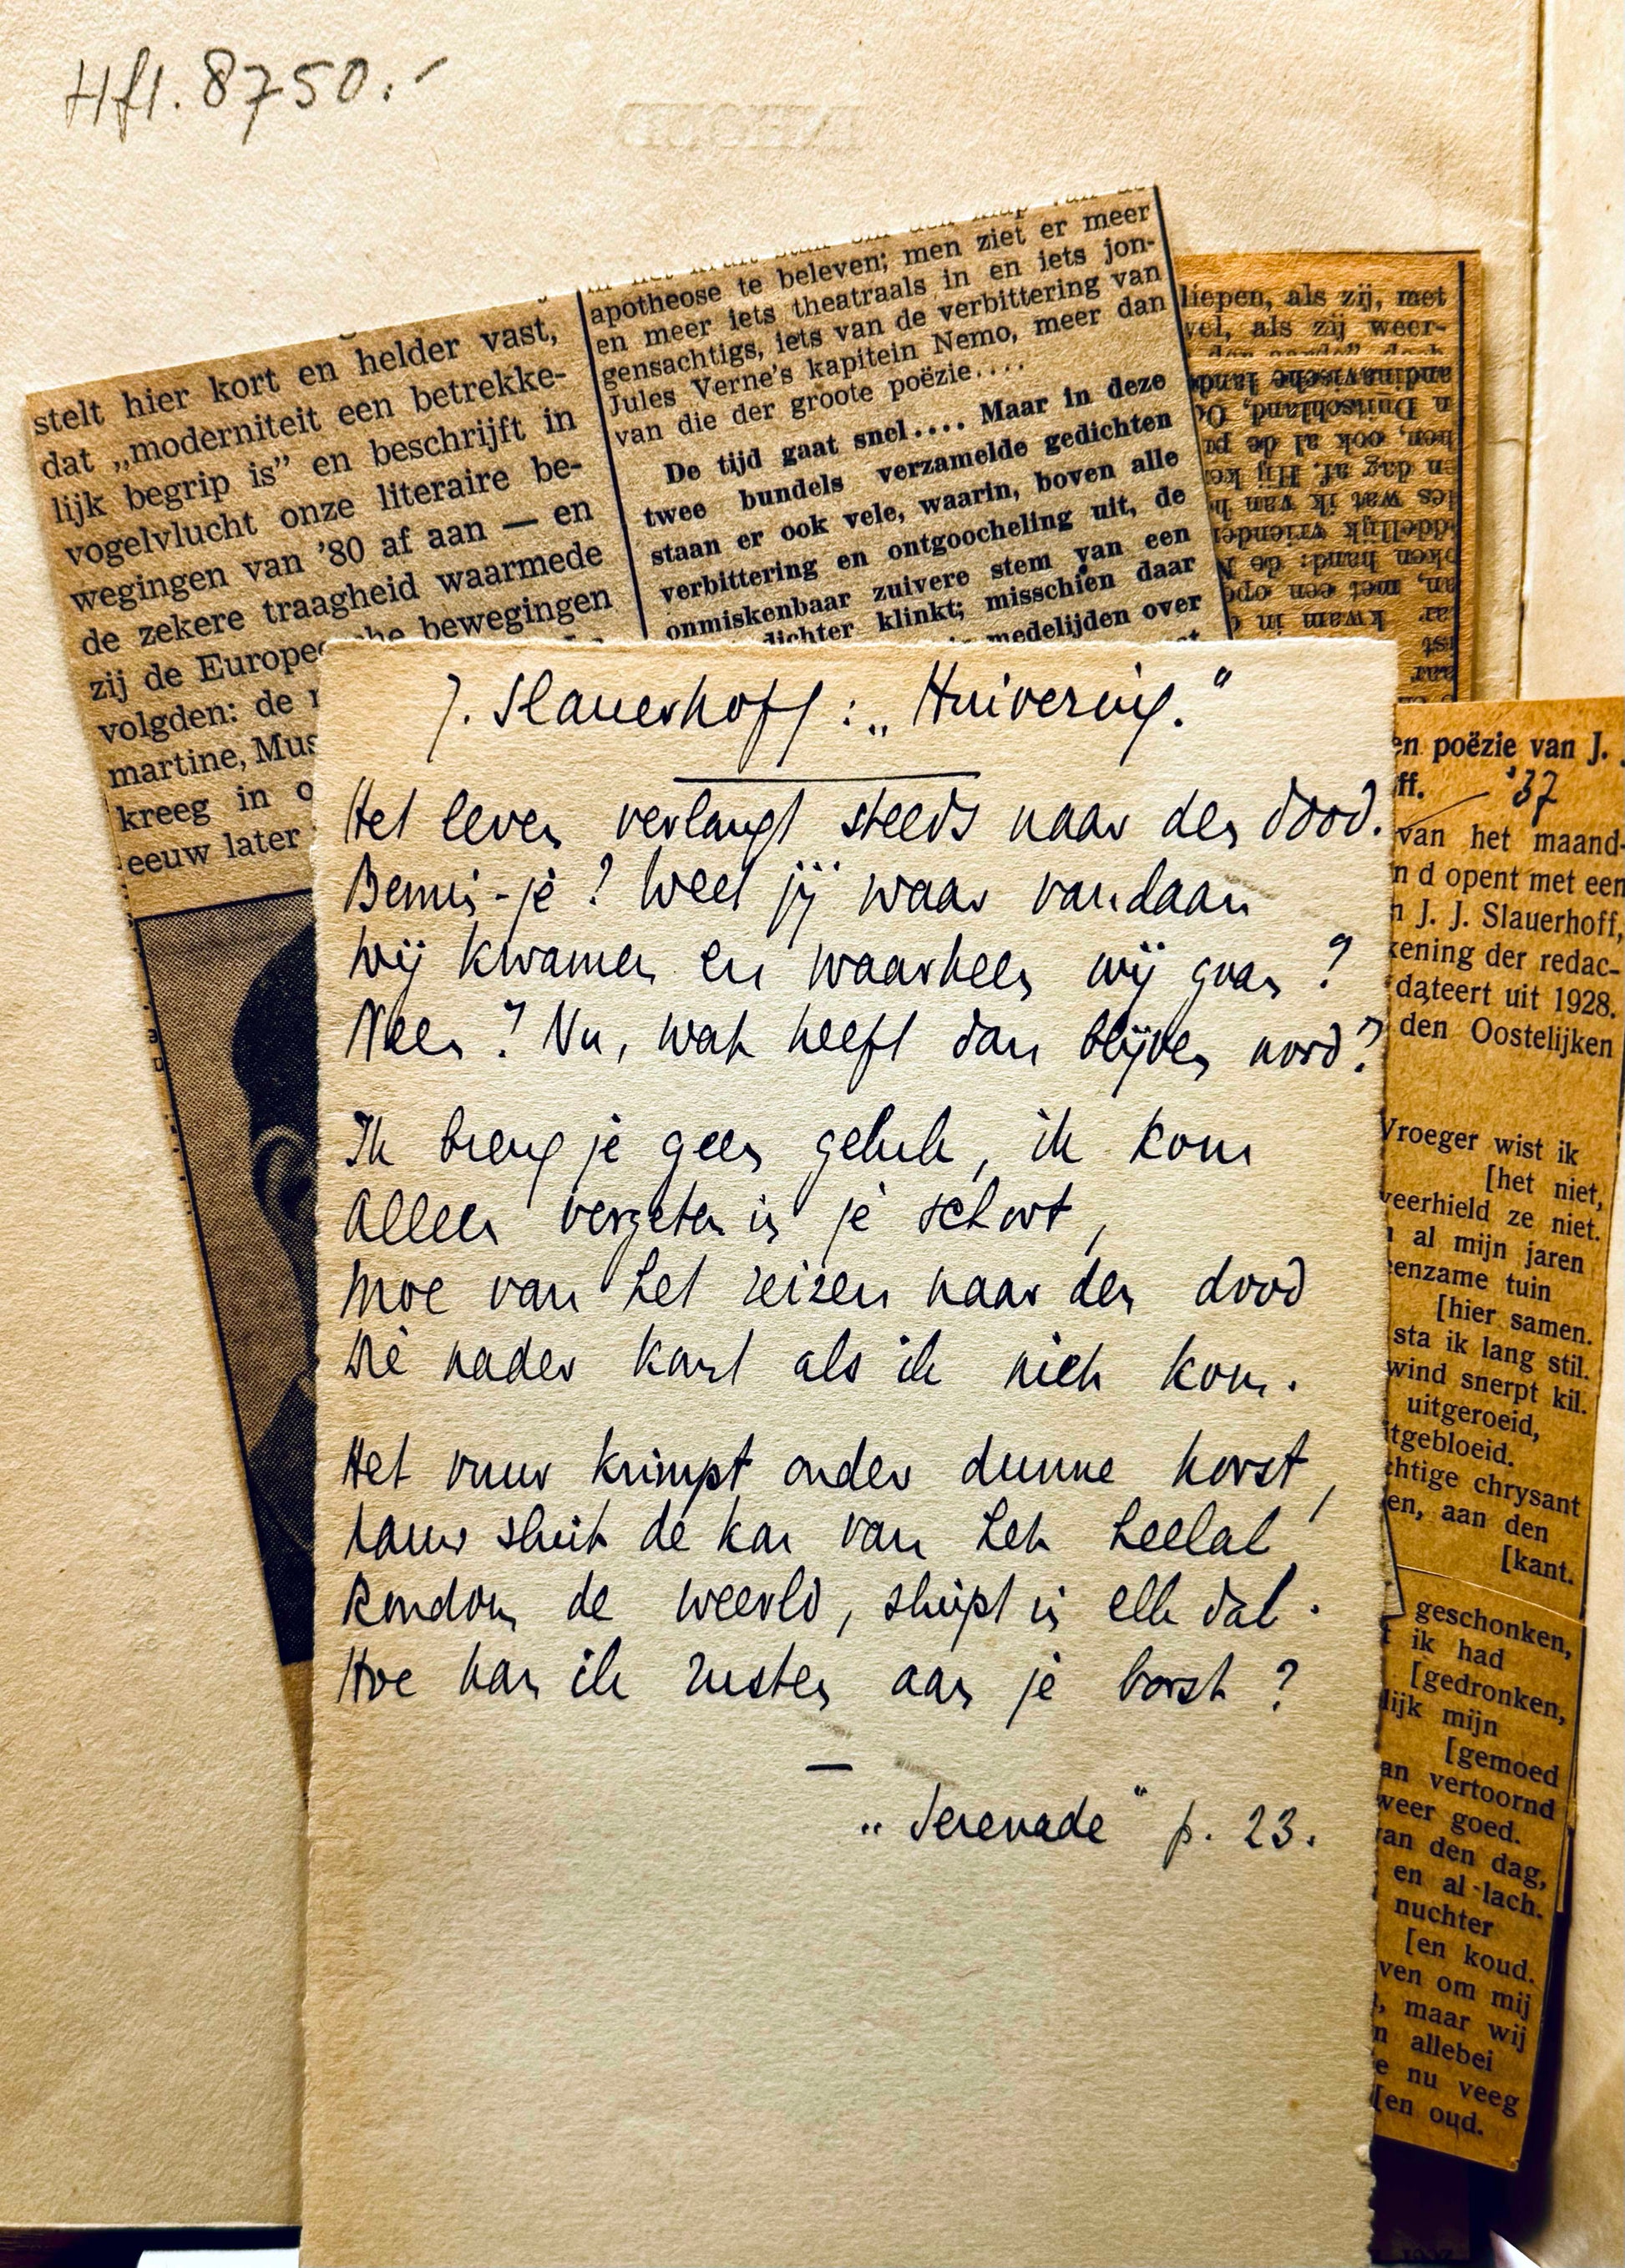 Hfl. 8750.-
INHOUD
stelt hier kort en helder vast,
dat „moderniteit een betrekke-
lijk begrip is” en beschrijft in
vogelvlucht onze literaire be-
wegingen van ’80 af aan — en
de zekere traagheid waarmede
zij de Europe he bewegingen
volgden: de
martine, Mus
kreeg in o
eeuw later
apotheose te beleven; men ziet er meer
en meer iets theatraals in en iets jon-
gensachtigs, iets van de verbittering van
Jules Verne’s kapitein Nemo, meer dan
van die der groote poëzie....
De tijd gaat snel.... Maar in deze
twee bundels verzamelde gedichten
staan er ook vele, waarin, boven alle
verbittering en ontgoocheling uit, de
onmiskenbaar zuivere stem van een
dichter klinkt; misschien daar
medelijden over
liepen, als zij, met
vel, als zij weer-
andinavische land
n Duitschland, O
hen, ook al de pr
en dag af. Hij ke
les wat ik van h
ddellijk vriende
oken hand: de N
an, met een ope
ar kwam in
J. Slauerhoff: „Huivering.”
Het leven verlangt steeds naar den dood.
Bemin-je? Weet jij waar vandaan
Wij kwamen en waarheen wij gaan?
Neen? Nu, wat heeft dan blijven nood?
Ik breng je geen geluk, ik kom
Alleen vergeten in je schoot,
Moe van het reizen naar den dood
Die nader komt als ik niet kom.
Het vuur krimpt onder dunne korst,
Lauw sluit de kou van het heelal
Rondom de weerld, sluipt in elk dal.
Hoe kan ik rusten aan je borst?
—
„Serenade” p. 23.
en poëzie van J.
ff. ’37
van het maand-
n d opent met een
n J. J. Slauerhoff,
kening der redac-
dateert uit 1928.
den Oostelijken
Vroeger wist ik
[het niet,
veerhield ze niet.
al mijn jaren
enzame tuin
[hier samen.
sta ik lang stil.
wind snerpt kil.
uitgeroeid,
itgebloeid.
chtige chrysant
en, aan den
[kant.
geschonken,
t ik had
[gedronken,
lijk mijn
[gemoed
an vertoornd
weer goed.
van den dag,
en al lach.
nuchter
[en koud.
ven om mij
, maar wij
n allebei
e nu veeg
[en oud.